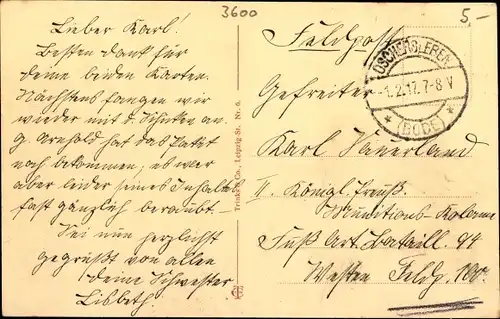 3600
5,-
Lieber Karl!
Besten Dank für
deine beiden Karten.
Nächstens fangen wir
wieder mit d. an.
G. Arnhold hat das Paket
noch bekommen; es war
aber leider seines Inhalts
fast gänzlich beraubt.
Sei nun herzlichst
gegrüßt von allen
deine Schwester
Lisbeth.
Trinks & Co., Leipzig-St. Nr. 6.
Feldpost
OSCHERSLEBEN
-1.2.17.7-8 V
* (BODE) *
Gefreiter
Karl
II. Königl. Preuß.
Munitions-Kolonne
Fuß Art. Bataill. 94
Westen Feldp. 100.